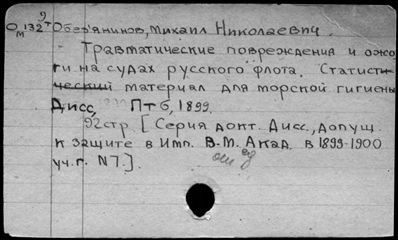 9
О 132 т Обезьянинов, Михаил Николаевич.
м
Травматические повреждения и ожо-
ги на судах русского флота. Статисти-
ческий материал для морской гигиены
Дисс, Птб, 1899.
92 стр. [Серия докт. Дисс., допущ.
к защите в Имп. В.М. Акад. в 1899-1900
уч. г. N 7.].